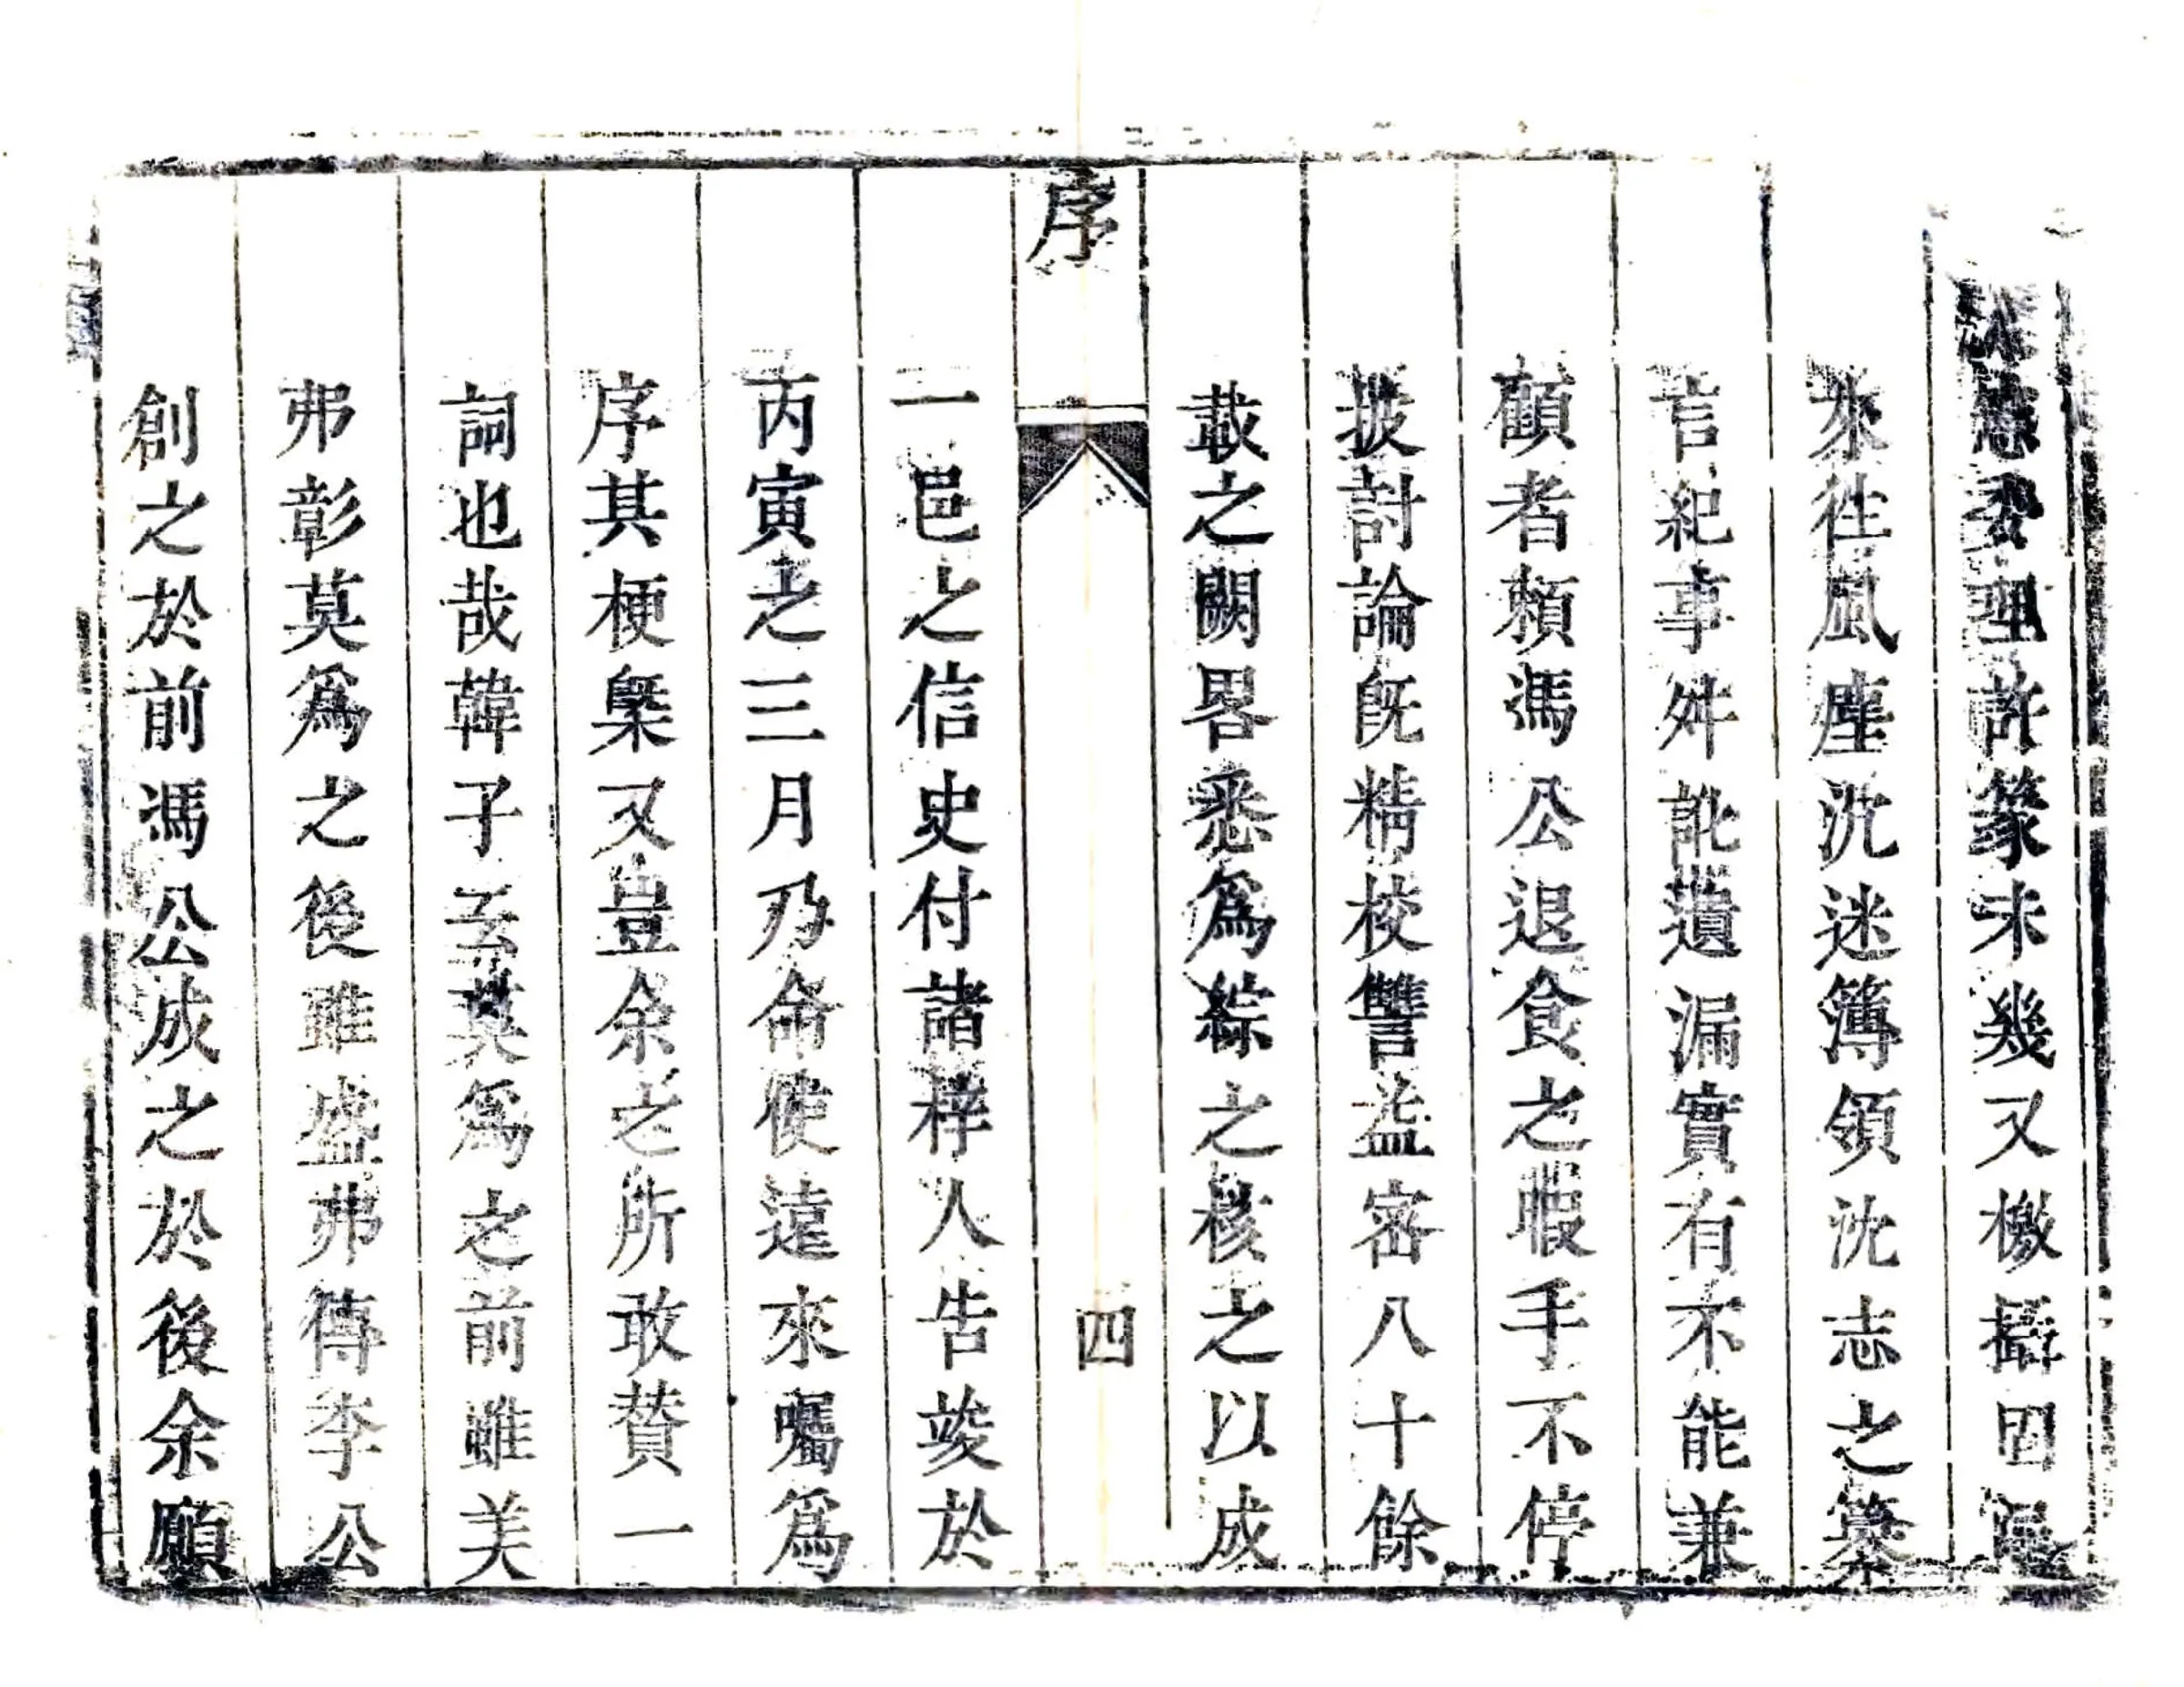 理許篆未幾又檄攝固
來徃風塵沈迷簿領沈志之纂
言紀事舛訛遺漏實有不能兼
顧者頼馮公退食之暇手不停
披討論旣精校讐益密八十餘
載之闕畧悉爲綜之核之以成
序
四
一邑之信史付諸梓人告竣於
丙寅之三月乃命使遠來囑爲
序其梗槩又豈余之所敢賛一
詞也哉韓子云莫爲之前雖美
弗彰莫爲之後雖盛弗傳李公
創之於前馮公成之於後余願